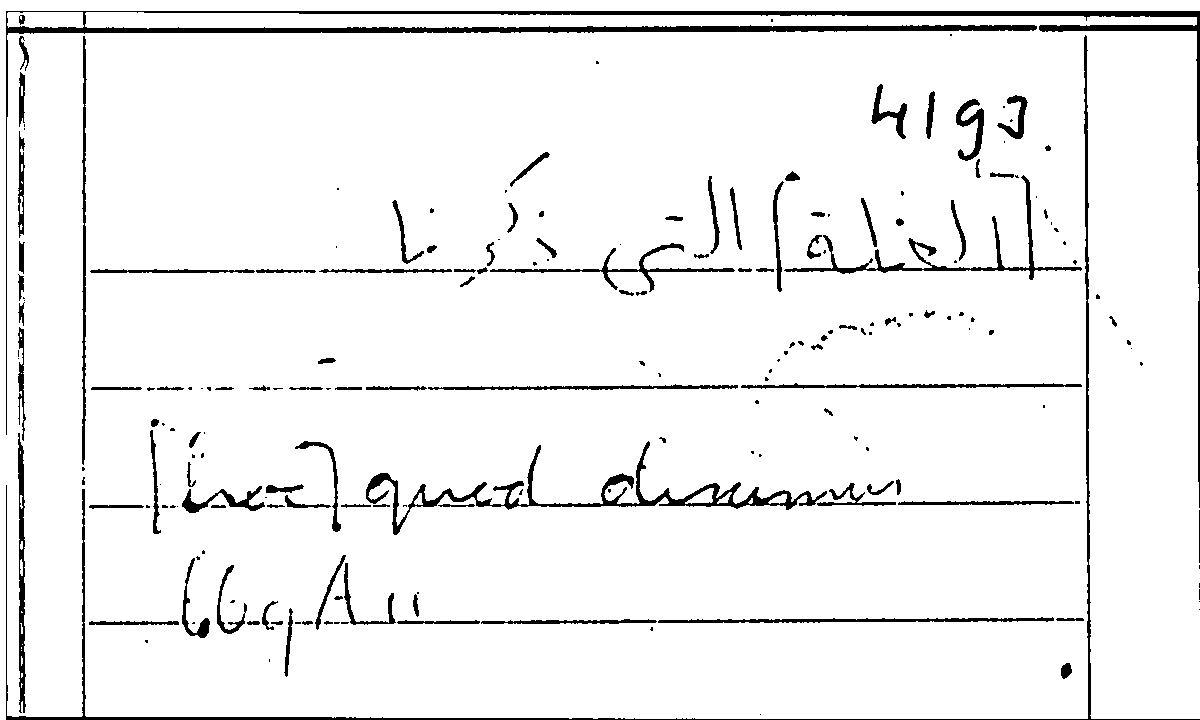 4193
[العلة] التي ذكرنا
[hoc] quod diximus
669 A 11